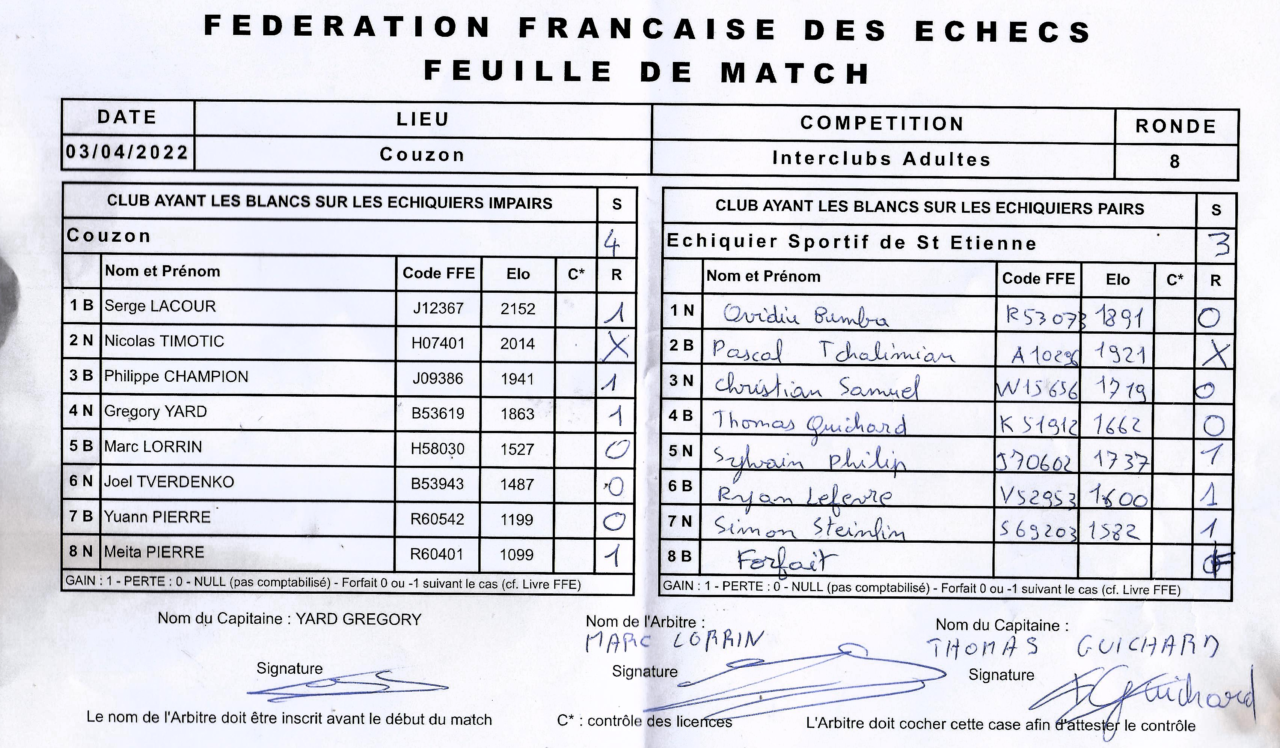 FEDERATION FRANCAISE DES ECHECS
FEUILLE DE MATCH
DATE LIEU COMPETITION RONDE
03/04/2022 Couzon Interclubs Adultes 8
CLUB AYANT LES BLANCS SUR LES ECHIQUIERS IMPAIRS S
Couzon 4
Nom et Prénom Code FFE Elo C* R
1 B Serge LACOUR J12367 2152 1
2 N Nicolas TIMOTIC H07401 2014 X
3 B Philippe CHAMPION J09386 1941 1
4 N Gregory YARD B53619 1863 1
5 B Marc LORRIN H58030 1527 0
6 N Joel TVERDENKO B53943 1487 0
7 B Yuann PIERRE R60542 1199 0
8 N Meita PIERRE R60401 1099 1
GAIN : 1 - PERTE : 0 - NULL (pas comptabilisé) - Forfait 0 ou -1 suivant le cas (cf. Livre FFE)
CLUB AYANT LES BLANCS SUR LES ECHIQUIERS PAIRS S
Echiquier Sportif de St Etienne 3
Nom et Prénom Code FFE Elo C* R
1 N Ovidiu Bumba R53073 1891 0
2 B Pascal Tchalimian A10296 1921 X
3 N Christian Samuel W15656 1719 0
4 B Thomas Guichard K51912 1662 0
5 N Sylvain Philip J70602 1737 1
6 B Ryan Lefevre V52953 1600 1
7 N Simon Steinlin S69203 1582 1
8 B Forfait
GAIN : 1 - PERTE : 0 - NULL (pas comptabilisé) - Forfait 0 ou -1 suivant le cas (cf. Livre FFE)
Nom du Capitaine : YARD GREGORY
Signature
Nom de l'Arbitre :
MARC LORRIN
Signature
Nom du Capitaine :
THOMAS GUICHARD
Signature
Guichard
Le nom de l'Arbitre doit être inscrit avant le début du match C* : contrôle des licences L'Arbitre doit cocher cette case afin d'attester le contrôle